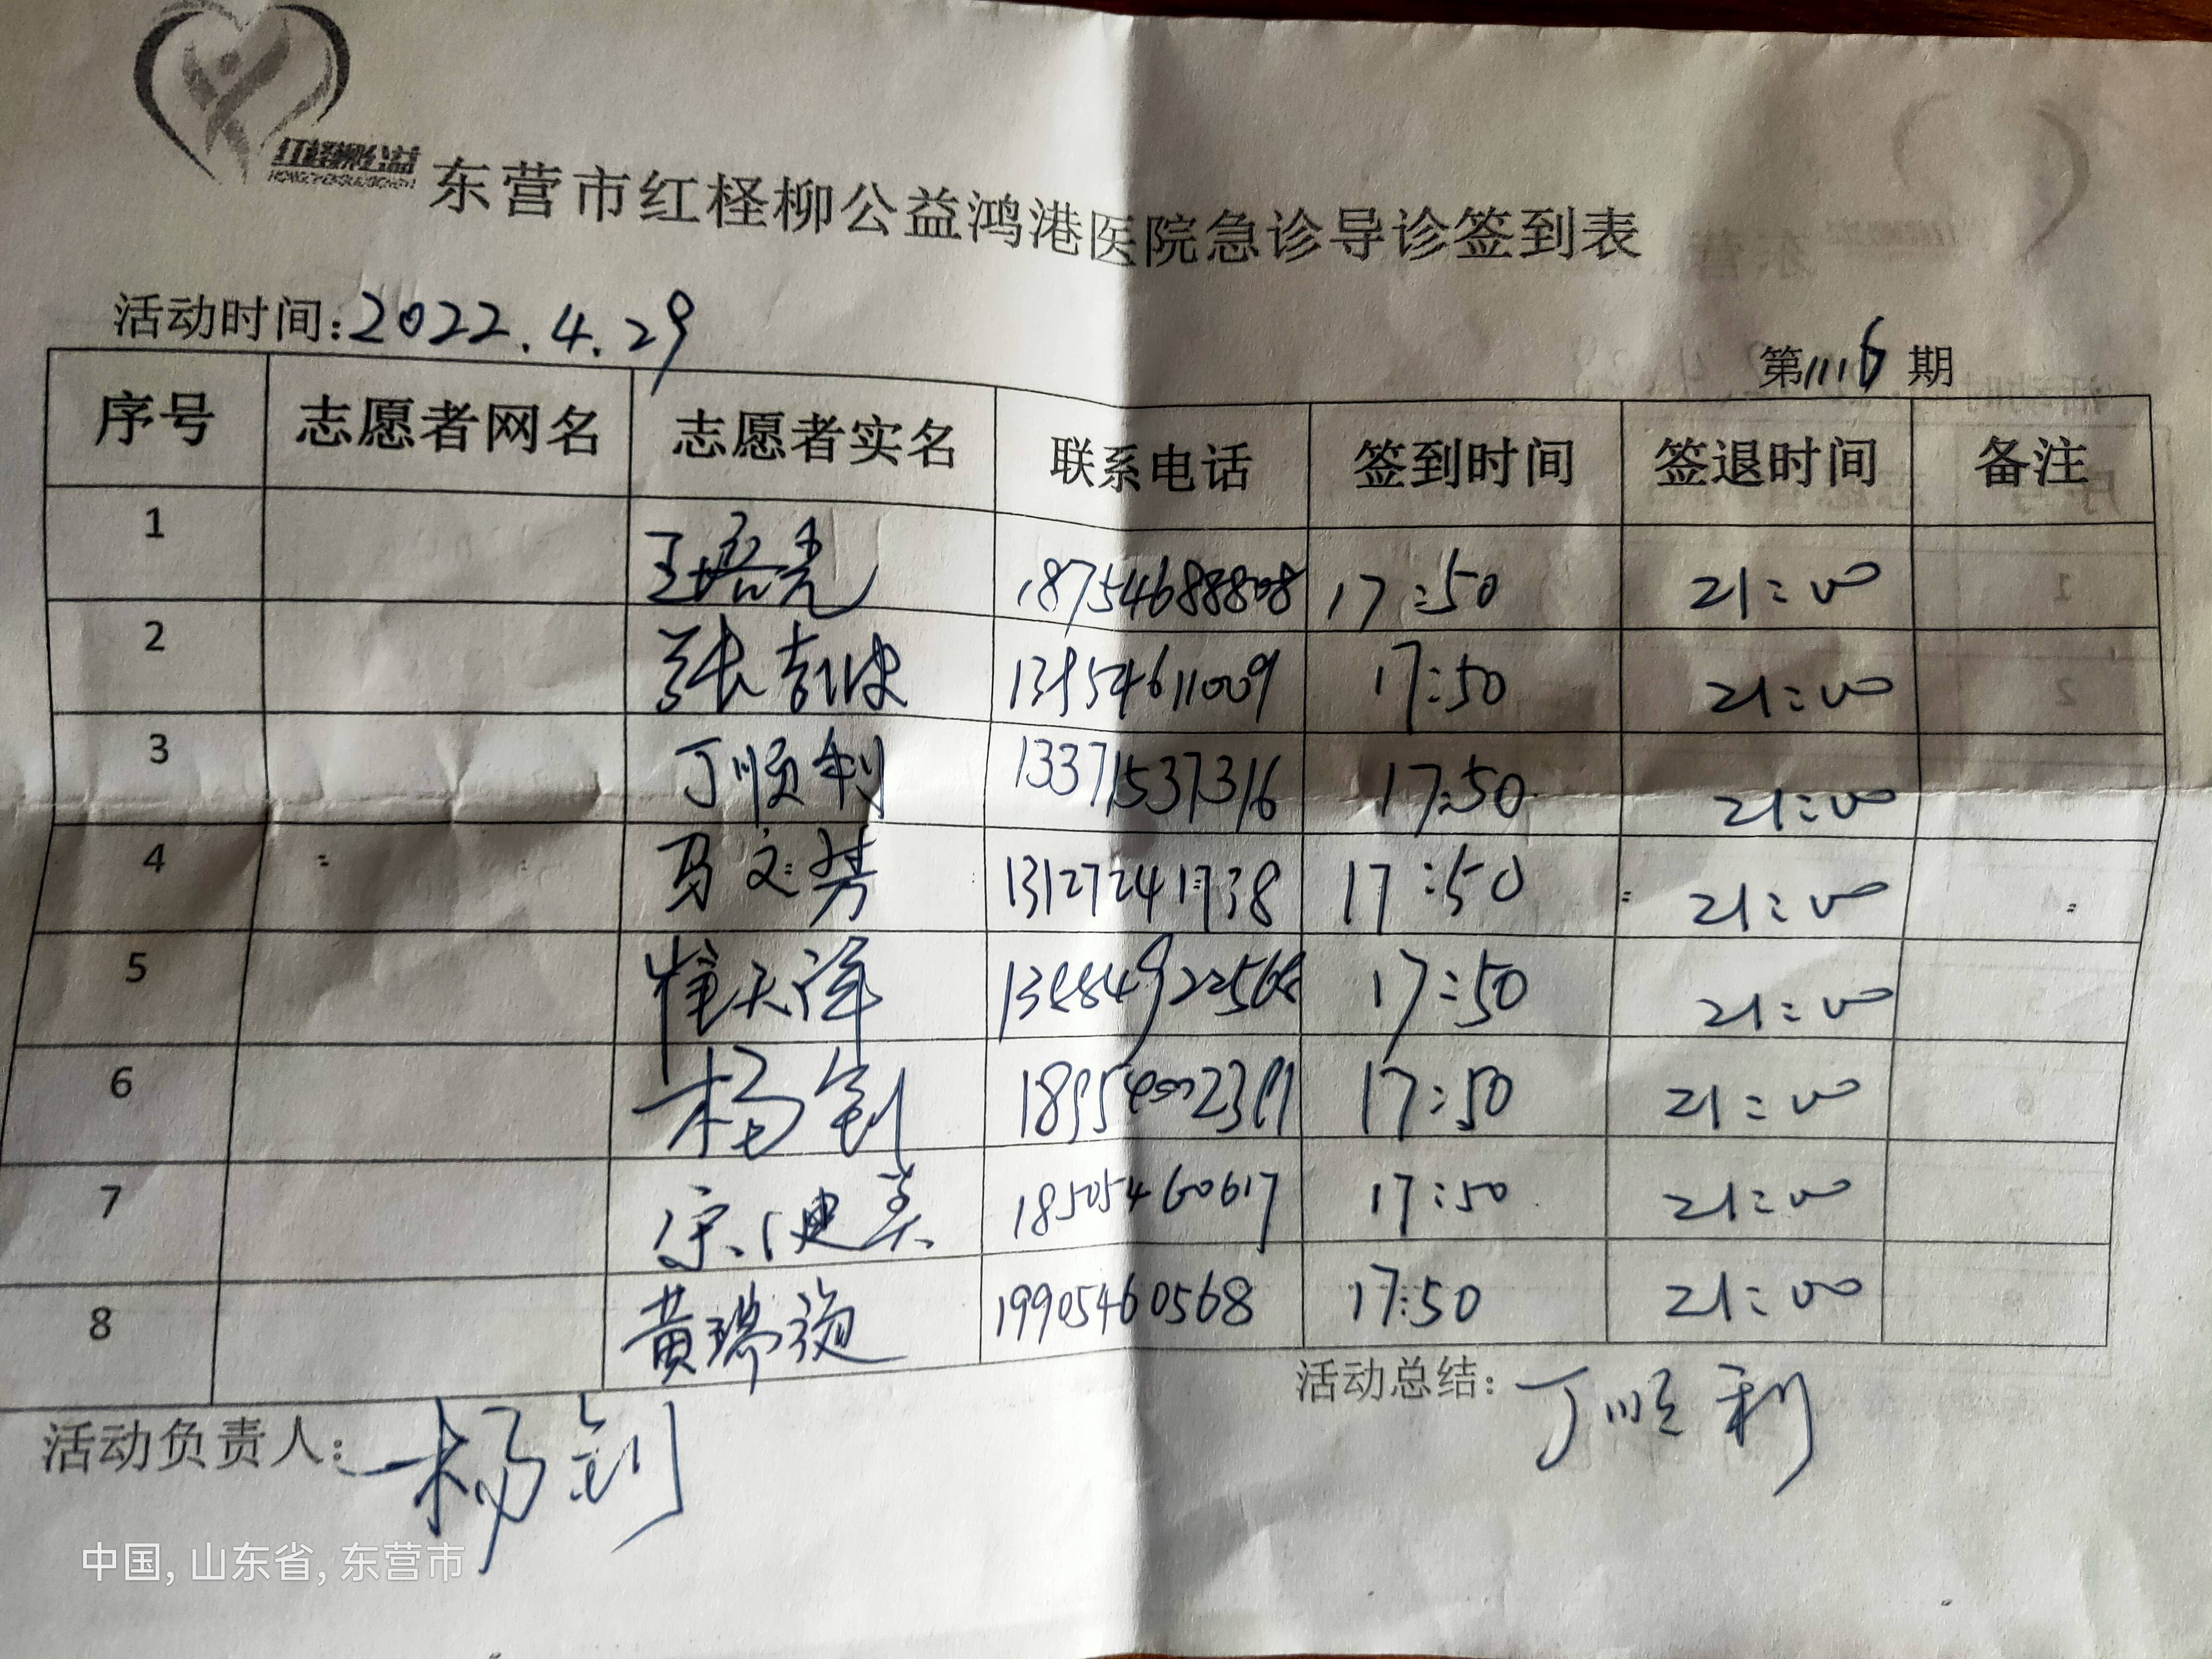 红柽柳公益
东营市红柽柳公益鸿港医院急诊导诊签到表
活动时间:2022.4.29
第1116期
序号 志愿者网名 志愿者实名 联系电话 签到时间 签退时间 备注
1 王培亮 18754688808 17:50 21:00
2 张 13954611009 17:50 21:00
3 丁顺利 13371537316 17:50 21:00
4 马文芳 13127241738 17:50 21:00
5 崔天洋 17:50 21:00
6 杨钊 17:50 21:00
7 宋 英 18505460617 17:50 21:00
8 黄瑞 19905460568 17:50 21:00
活动负责人:杨钊
活动总结:丁顺利
中国, 山东省, 东营市